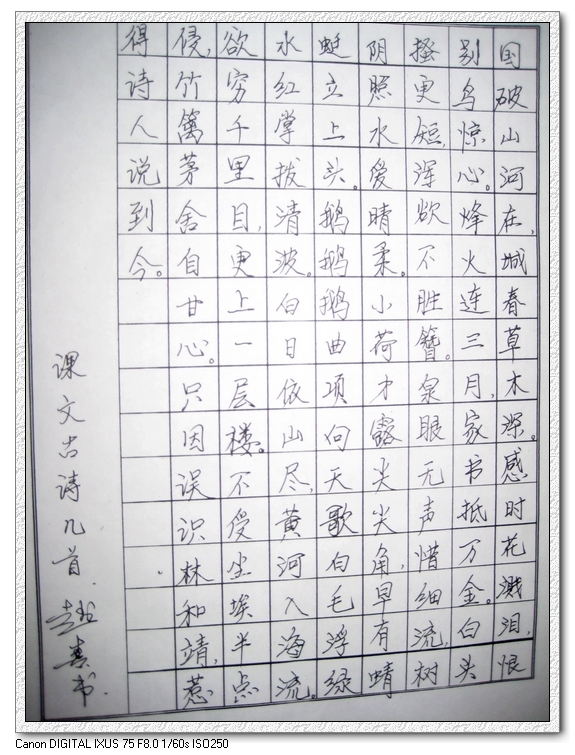 国破山河在,城春草木深。感时花溅泪,恨
别鸟惊心。烽火连三月,家书抵万金。白头
搔更短,浑欲不胜簪。泉眼无声惜细流,树
阴照水爱晴柔。小荷才露尖尖角,早有蜻
蜓立上头。鹅鹅鹅曲项向天歌白毛浮绿
水红掌拔清波。白日依山尽,黄河入海流。
欲穷千里目,更上一层楼。不受尘埃半点
侵,竹篱茅舍自甘心。只因误识林和靖,惹
得诗人说到今。
课文古诗几首.
书.
Canon DIGITAL IXUS 75 F8.0 1/60s ISO250